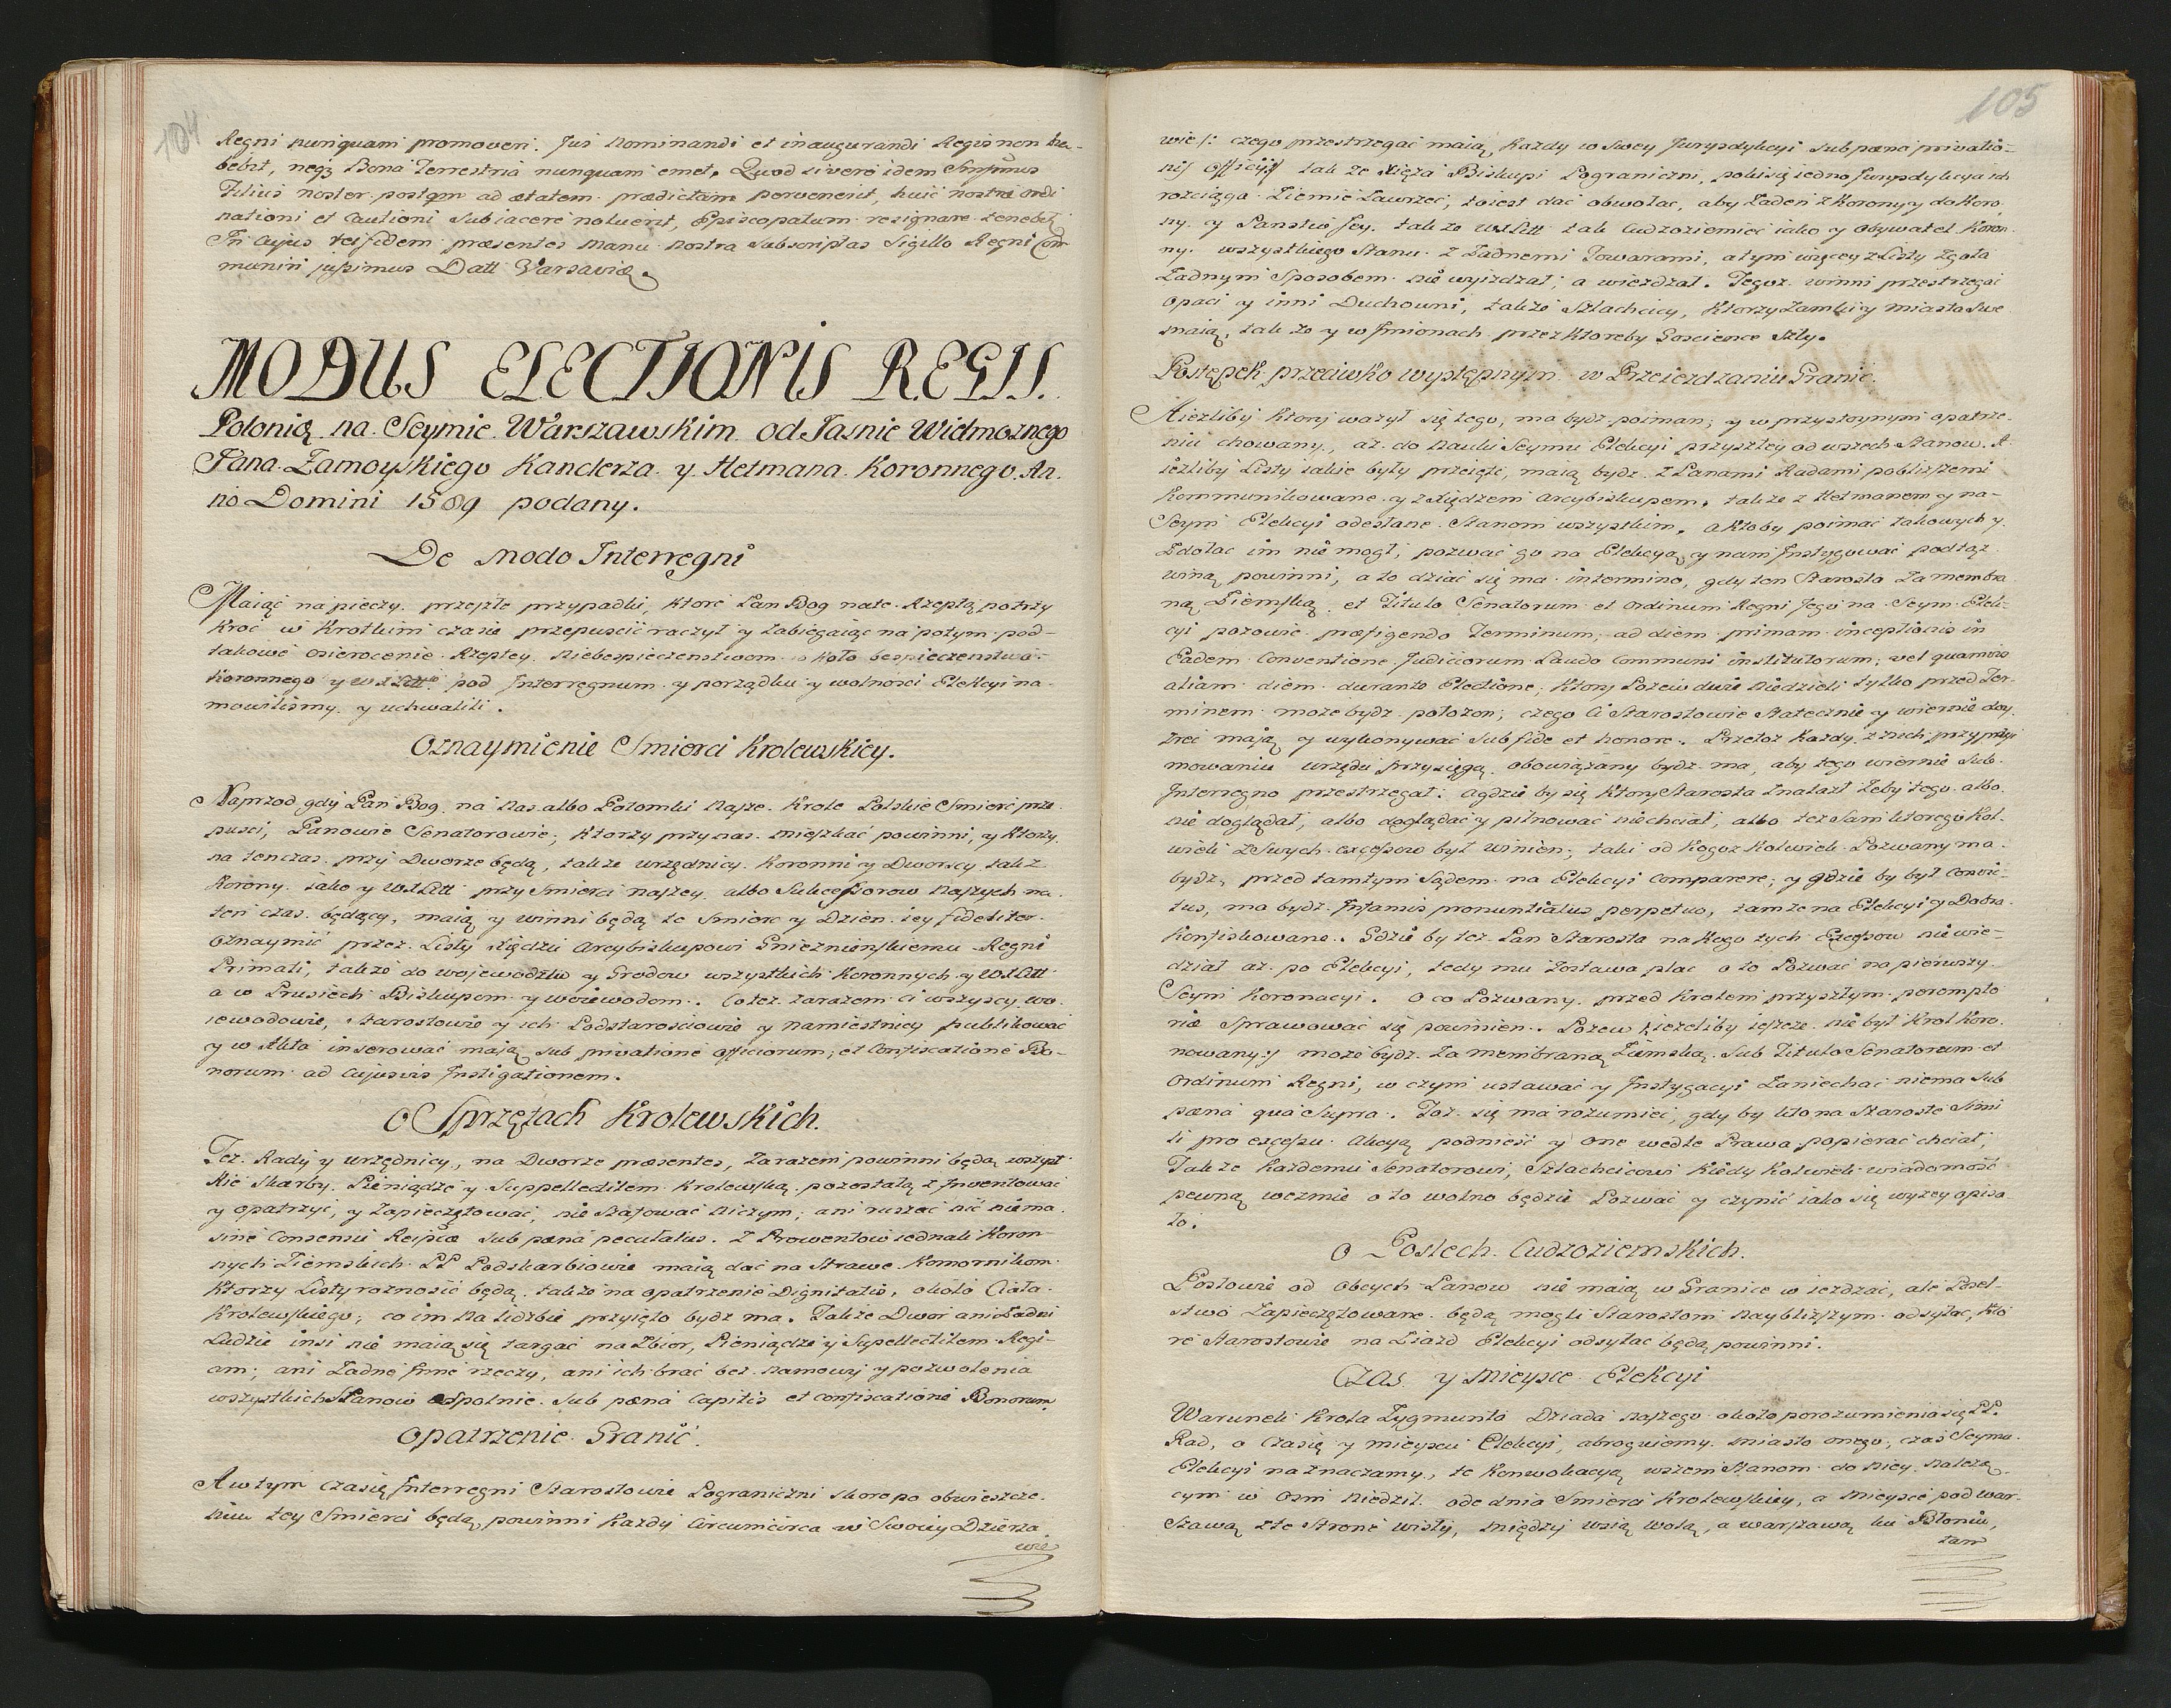 104
Regni nunquam promoveri. Jus Nominandi et inaugurandi Regis non ha-
bebit, neqz Bona Terrestria nunquam emet. Quod si vero idem
Filius noster postqm ad ætatem prædictam pervenerit, huic nostræ ordi
nationi et Cautioni Subiacere noluerit, Episcopatum resignare tenebit
In Cujus rei fidem præsentes Manu Nostra Subscriptas Sigillo Regni Com
muniri jussimus Datt Varsaviæ.
MODUS ELECTIONIS REGIS.
Poloniæ na Seymie Warszawskim od Jasnie Wielmoznego
Pana Zamoyskiego Kanclerza y Hetmana Koronnego An.
no Domini 1589 podany.
De Modo Interregni
Maiąc na pieczy przeszłe przypadki, ktore Pan Bog na te Rzeptą po trzy
kroc w krotkim czasie przepuscić raczył y zabiegaiąc na potym pod-
takowe osierocenie Rzeptey Niebespieczenstwom około bespieczenstwa
Koronnego y WXLitt pod Interregnum y porządku y wolnosci Elekcyi na-
mowilismy y uchwalili.
Oznaymienie Smierci Krolewskiey.
Naprzod gdy Pan Bog na Nas albo Potomki Nasze Krole Polskie Smierć prze
pusci, Panowie Senatorowie, ktorzy przy nas mieszkać powinni, y ktorzy
na tenczas przy Dworze będą, takze urzędnicy Koronni y Dworscy tak z
Korony iako y WXLitt przy Smierci naszey albo Sukcessorow Naszych na
ten czas będący, maią y winni będą te Smierc y Dzien iey fideliter
Oznaymić przez Listy Xiędzu Arcybiskupowi Gnieznienskiemu Regni
Primati, takze do wojewodztw y Grodow wszystkich Koronnych y WXLitt
a w Prusiech Biskupom y woiewodom. Co tez zarazem ci wszyscy wo
iewodowie, Starostowie y ich Podstarosciowie y namiestnicy publikować
y w Akta inserować maią sub privatione officiorum, et Confiscatione Bo-
norum ad cujusvis Instigationem.
O Sprzętach Krolewskich.
Tez Rady y urzędnicy, na Dworze præsentes, zarazem powinni będą wszyst
kie Skarby Pieniądze y Suppellectilem Krolewską pozostałą z Inwentować
y opatrzyć, y zapieczętować, nie Szafować Niczym, ani ruszać nić niema
sine Consensu Reipcæ sub pæna peculatus. Z Prowentow iednak Koron-
nych Ziemskich PP Podskarbiowie maią dać na Strawe Komornikom
ktorzy Listy roznosić będą, takze na opatrzenie Dignitatis, około Ciała
Krolewskiego, co im na liczbie przyięto bydz ma. Takze Dwor ani Zadni
Ludzie insi nie maią się targać na Zbior, Pieniądze y Supellectilem Regi-
am; ani Zadne Inne rzeczy, ani ich brać bez Namowy y pozwolenia
wszystkich Stanow Spolnie Sub pæna Capitis et confiscatione Bonorum.
Opatrzenie Granic.
A w tym Czasie Interregni Starostowie Pograniczni skoro po obwieszcze-
niu tey Smierci będą powinni kazdy Circumcirca w Swoiey Dzierza
wie
105
wie /: czego przestrzegać maią kazdy w Swey Jurysdykcyi sub pæna privatio-
nis Officij :/ tak ze Xięza Biskupi Pograniczni, poki się iedno Jurysdykcya ich
rozciąga Ziemie Zawrzeć, to iest dać obwołac, aby zaden z Korony y do Koro
ny y Panstw Jey, takze WXLitt tak Cudzoziemiec iako y obywatel Koron
ny wszystkiego Stanu z Zadnemi Towarami, a tym więcey z Listy zgoła
Zadnym Sposobem nie wyjezdzał, a wiezdzał. Tegoz winni przestrzegac
Opaci y inni Duchowni, takze Szlachcicy, ktorzy Zamki y Miasta Swe
maią, takze y w Imionach przez ktoreby Goscience Szły.
Postępek przeciwko występnym w Przeiezdzaniu Granic.
Niezliby ktory wazył się tego, ma bydz poiman, y w przystoynym opatrze-
niu chowany, az do Nauki Seymu Elekcyi przyszłey od wszech Stanow. A
iezliby Listy iakie były przeięte, maią bydz z Panami Radami pobliszemi
Kommunikowane y z Xiędzem Arcybiskupem, takze z Hetmanem y na-
Seym Elekcyi odesłane Stanom wszystkim. A ktoby poimać takowych y
zdołac im nie mogł, pozwać go na Elekcyą y nam Instygować pod taz
winą powinni, a to dziać się ma in termino, gdy ten Starosta za membra
ną Ziemską, et Titulo Senatorum et Ordinum Regni Jego na Seym Elek-
cyi pozowie præfigendo Terminum, ad diem primam inceptionis in
Eadem Conventione Judiciorum Laudo Communi institutorum, vel quamvis
aliam diem durante Electione, ktory Pozew dwie Niedzieli tylko przed Ter-
minem moze bydz połozon; czego Ci Starostowie Statecznie y wiernie doy
zrec mają y wykonywać Sub fide et honore. Przetoz kazdy z nich przy przy
mowaniu urzędu przysięgą obowiązany bydz ma, aby tego wiernie Sub-
Interregno przestrzegał: a gdzie by się ktory Starosta znalazł zeby tego albo
nie doglądał, albo doglądać y pilnować niechciał, albo tez Sam ktorego kol-
wiek z Swych excessow był winien, taki od kogoz kolwiek Pozwany ma
bydz, przed tamtym Sądem na Elekcyi Comparere, y gdzie by był convic-
tus, ma bydz Infamis pronuntiatus perpetuo, tamze na Elekcyi y Dobra
Konfiskowane. Gdzie by tez Pan Starosta na kogo tych Excessow nie wie-
dział az po Elekcyi, tedy mu zostawa plac o to Pozwać na pierwszy
Seym Koronacyi. O co Pozwany przed Krolem przyszłym perempto
rie Sprawować się powinien. Pozew /:iezeliby ieszcze nie był Krol Koro-
nowany:/ moze bydz za membraną Ziemską Sub Titulo Senatorum et
Ordinum Regni, w czym ustawać y Instygacyi Zaniechać niema Sub
pæna qua Supra. Toz się ma rozumieć, gdy by kto na Staroste Simi
li pro excessu Akcyą podnieść y one wedle Prawa popierać chciał,
Takze kazdemu Senatorowi, Szlachcicowi kiedy kolwiek wiadomość
pewną wezmie o to wolno będzie Pozwać y czynić iako się wyzey opisa
ło.
O Posłech Cudzoziemskich.
Posłowie od obcych Panow nie maią w Granice w iezdzać, ale Posel-
stwo Zapieczętowane będą mogli Starostom Naybliszym odsyłac, kto
re Starostowie na Ziazd Elekcyi odsyłac będą powinni.
Czas y Mieysce Elekcyi
Warunek Krola Zygmunta Dziada naszego około porozumienia się PP.
Rad, o Czasie y mieyscu Elekcyi, abroguiemy, miasto onego, czas Seymu
Elekcyi naznaczamy, te Konwokacyą wszem Stanom do Niey Nalezą
cym w Osm Niedziel ode dnia Smierci Krolewskiey, a Mieysce pod War-
szawą z te Strone Wisły, między wsią Wolą, a Warszawą ku Błoniu,
tam